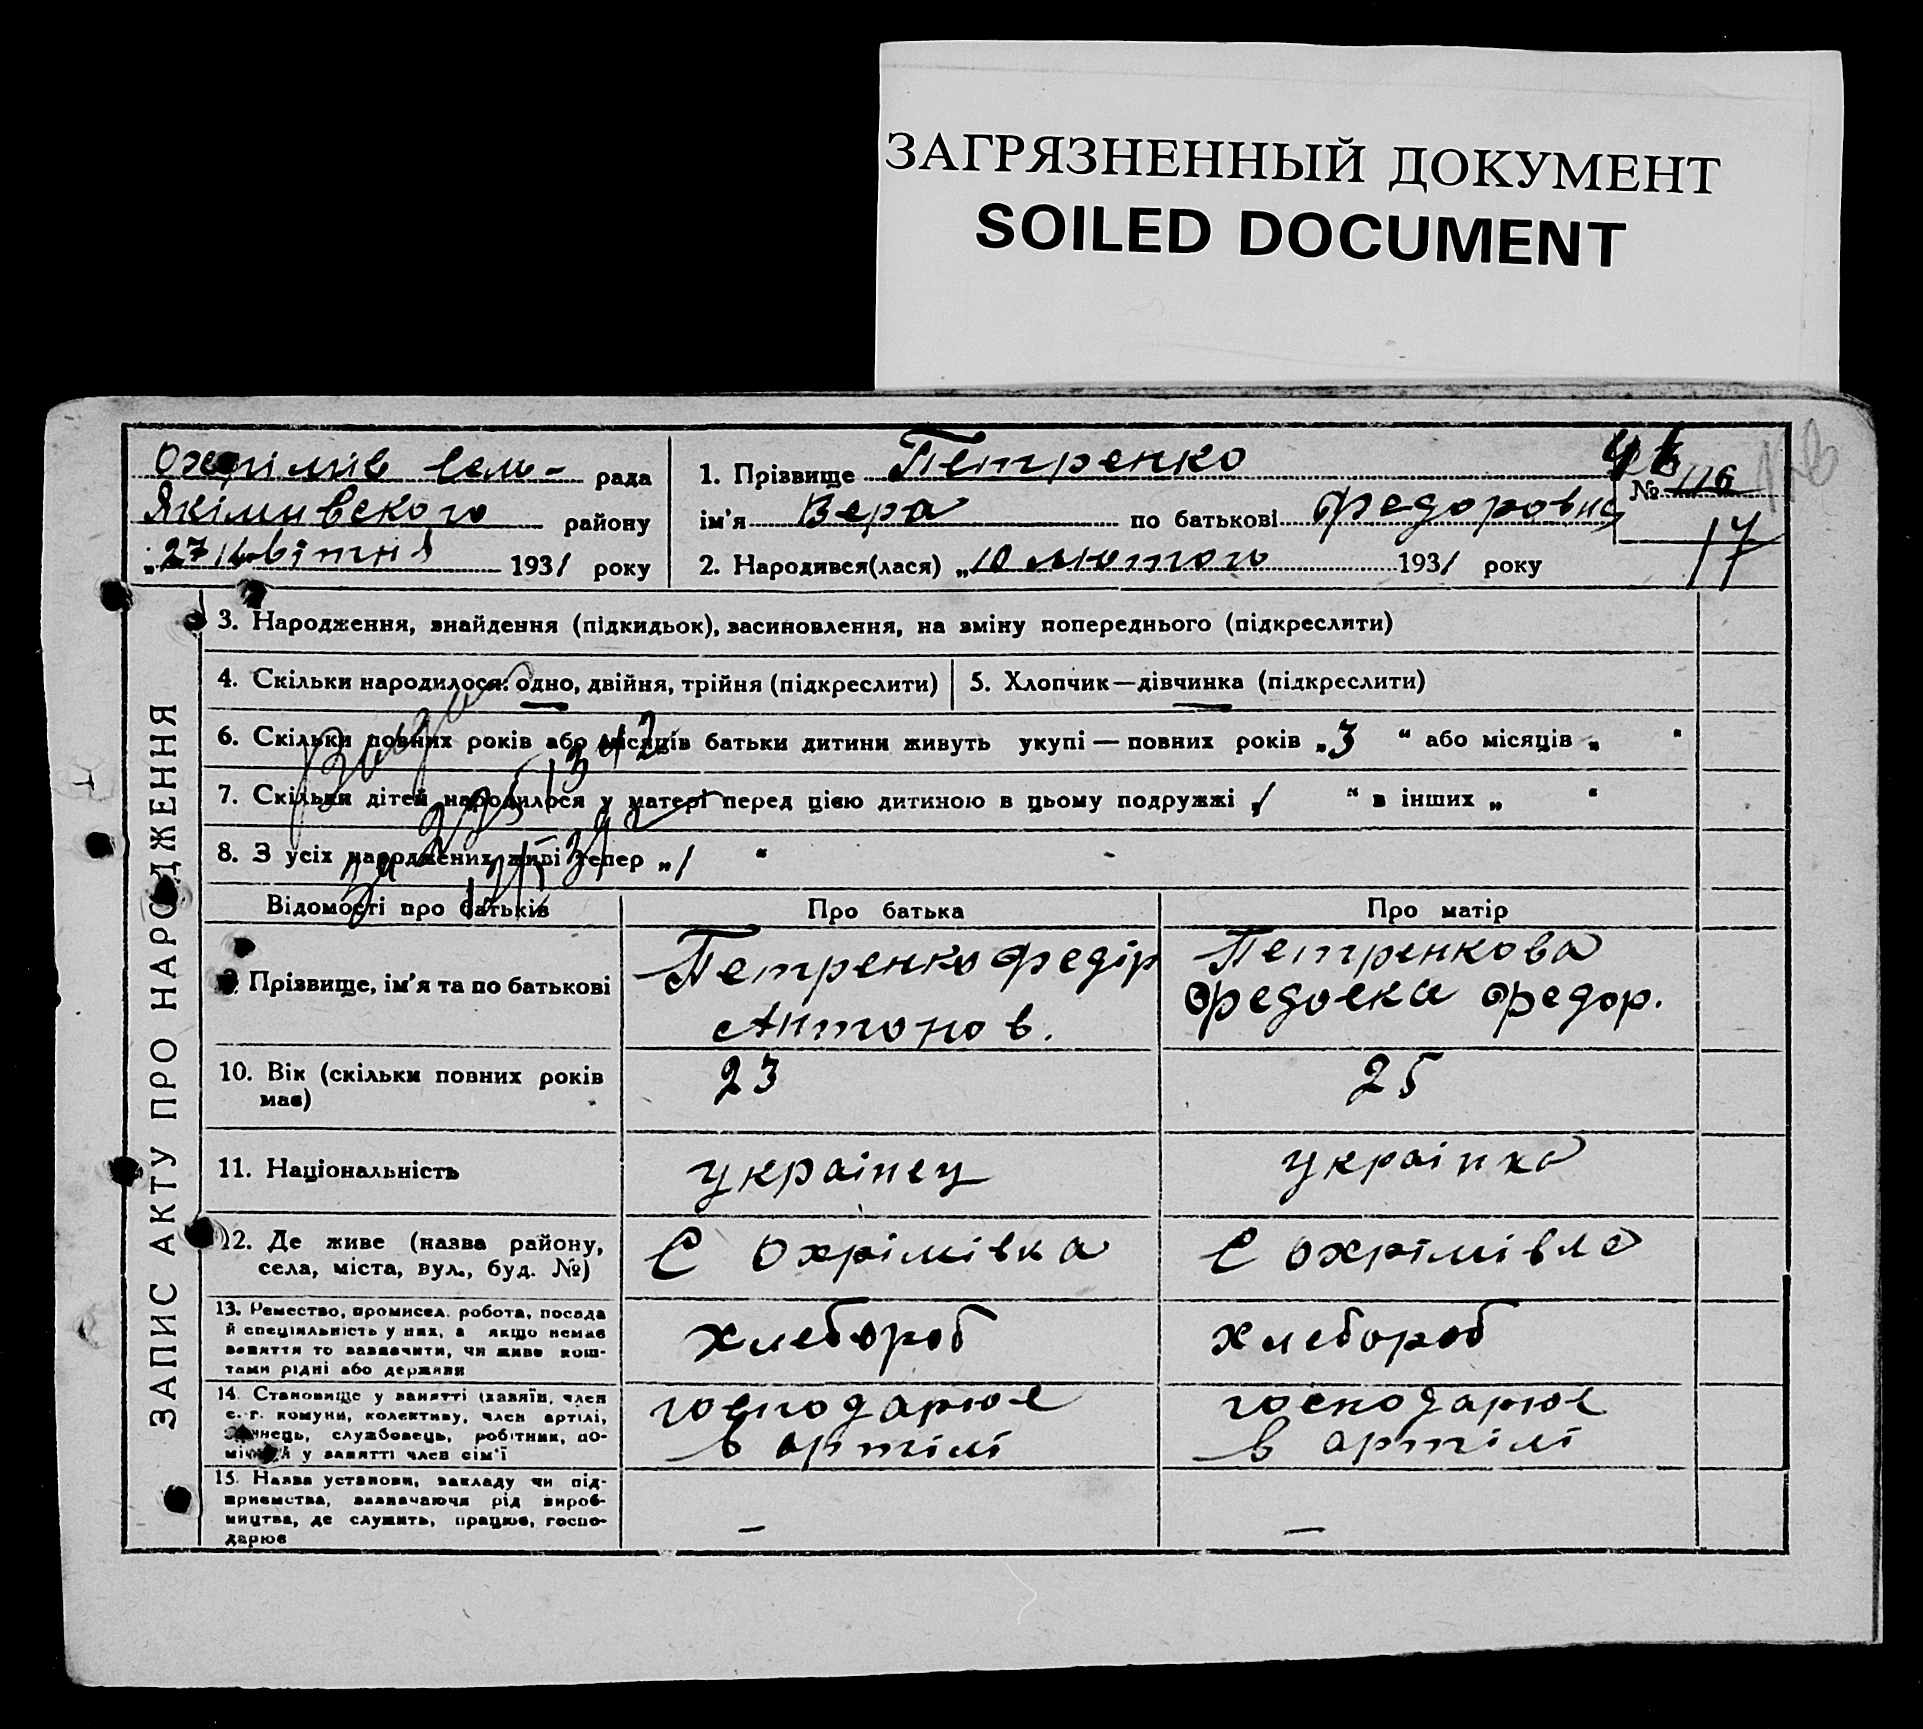 ЗАГРЯЗНЕННЫЙ ДОКУМЕНТ
SOILED DOCUMENT
Охрімів сель- рада
Якімивского району
„27 Квітня 1931 року
1. Прізвище Петренко
ім'я Вера по батькові Федоровна
2. Народився(лася) „10 лютого 1931 року
№ 116
17
116
ЗАПИС АКТУ ПРО НАРОДЖЕННЯ
3. Народження, знайдення (підкидьок), засиновлення, на зміну попереднього (підкреслити)
4. Скільки народилося: одно, двійня, трійня (підкреслити)
5. Хлопчик—дівчинка (підкреслити)
6. Скільки повних років або місяців батьки дитини живуть укупі — повних років „3 “ або місяців „ “
7. Скільки дітей народилося у матері перед цією дитиною в цьому подружжі „1 “ в інших „ “
8. З усіх народжених живі тепер „1 “
Відомості про батьків
Про батька
Про матір
9. Прізвище, ім'я та по батькові
Петренко Федір
Антонов.
Петренкова
Федоска Федор.
10. Вік (скільки повних років
має)
23
25
11. Національність
українец
українка
12. Де живе (назва району,
села, міста, вул., буд. №)
С Охрімівка
С Охрімівка
13. Ремество, промисел, робота, посада
й спеціяльність у них, а якщо немає
заняття то зазначити, чи живе кош-
тами рідні або держави
хлебороб
хлебороб
14. Становище у занятті (хазяїн, член
с.-г. комуни, колективу, член артілі,
службовець, робітник, по-
у занятті член сім'ї
господарює
в артілі
господарює
в артілі
15. Назва установи, закладу чи під-
приємства, зазначаючи рід вироб-
ництва, де служить, працює, госпо-
дарює
—
—